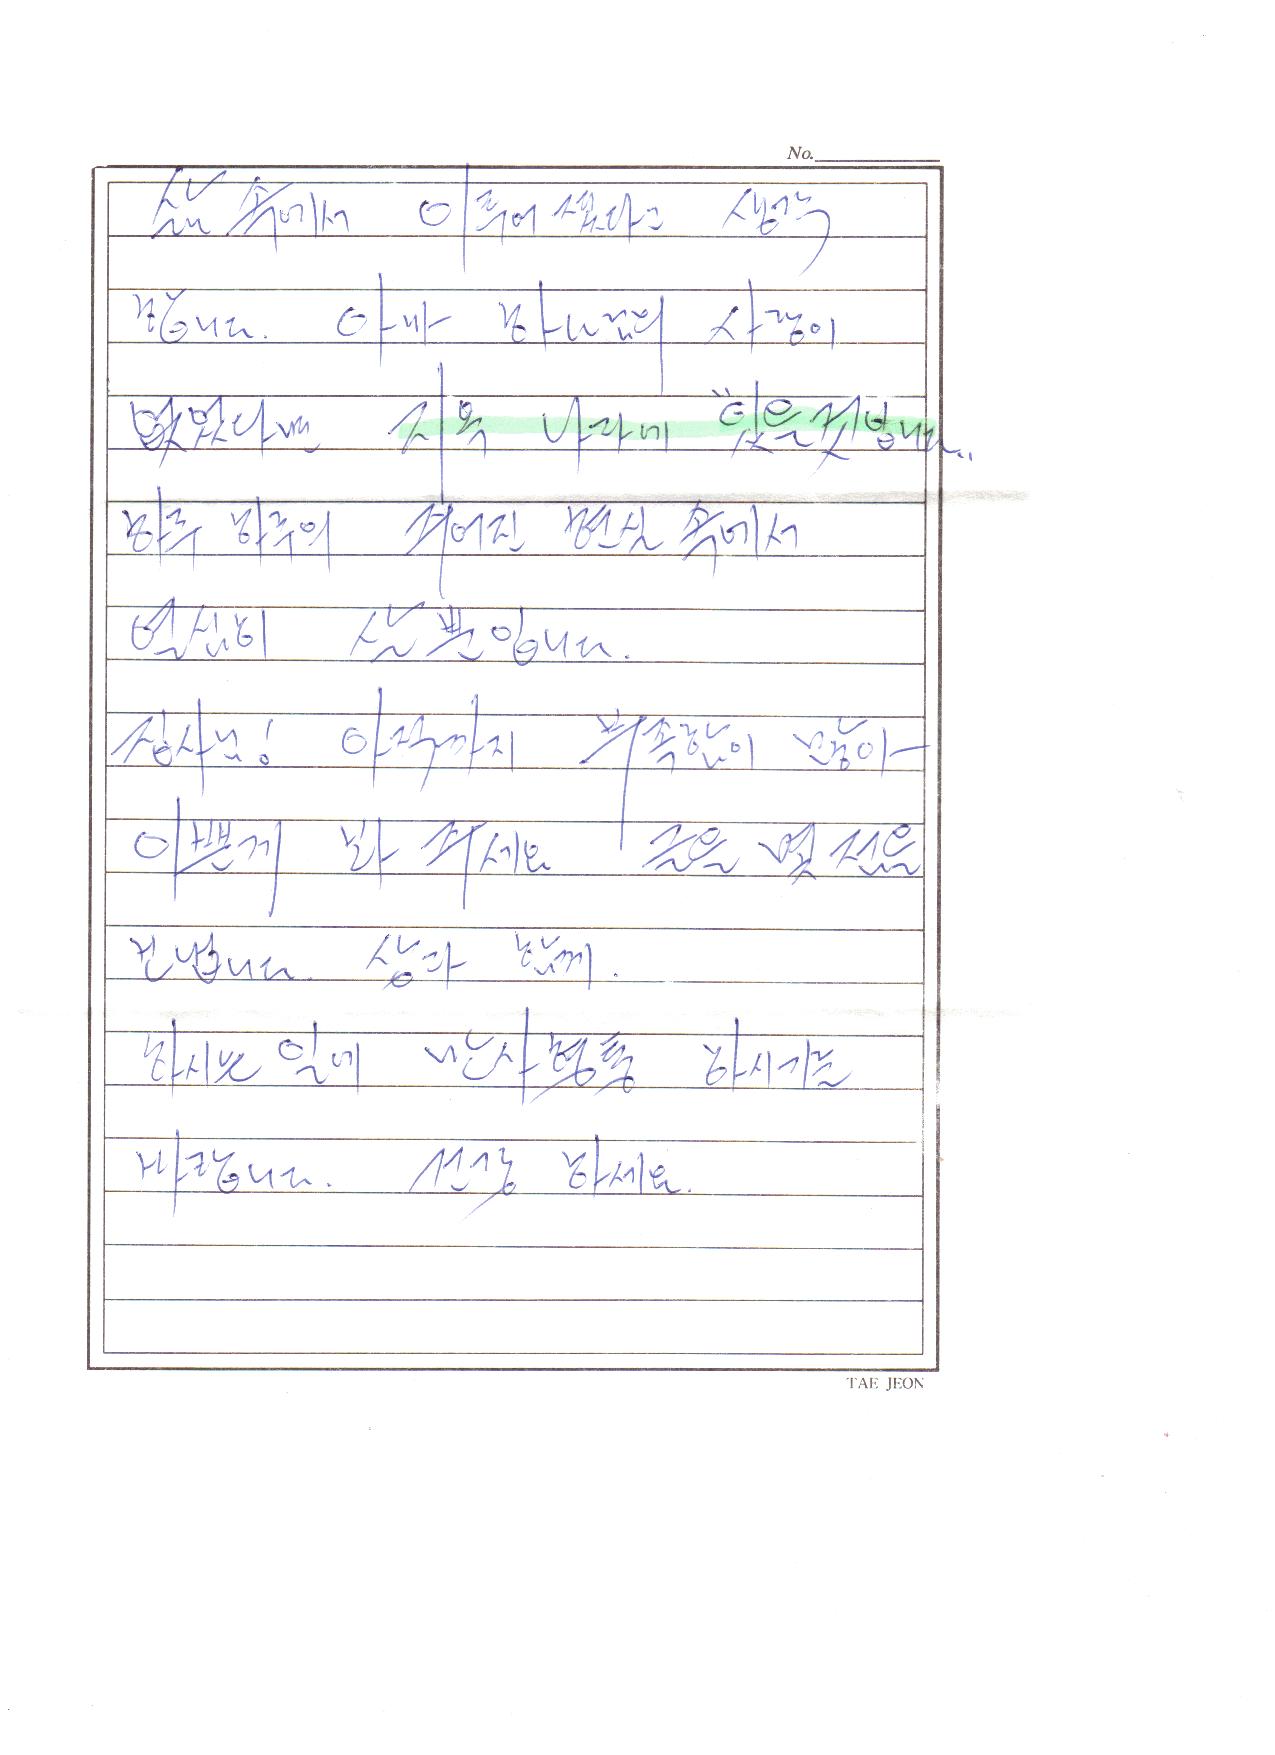 No.
삶 속에서 이루어 졌다고 생각
합니다. 아마 하나님의 사랑이
없었다면 지옥 나라에 있을것 입니다..
하루 하루의 주어진 현실 속에서
열심히 살뿐입니다.
집사님! 아직까지 부족함이 많아
이쁘게 봐 주세요 글을 몇 전은
보냅니다. 상다 함께.
하시는 일에 만사형통 하시기를
바랍니다. 건강 하세요.
TAE JEON